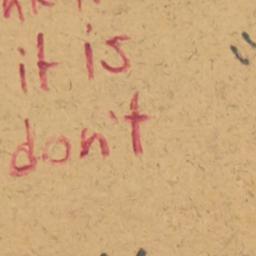 it is
don't